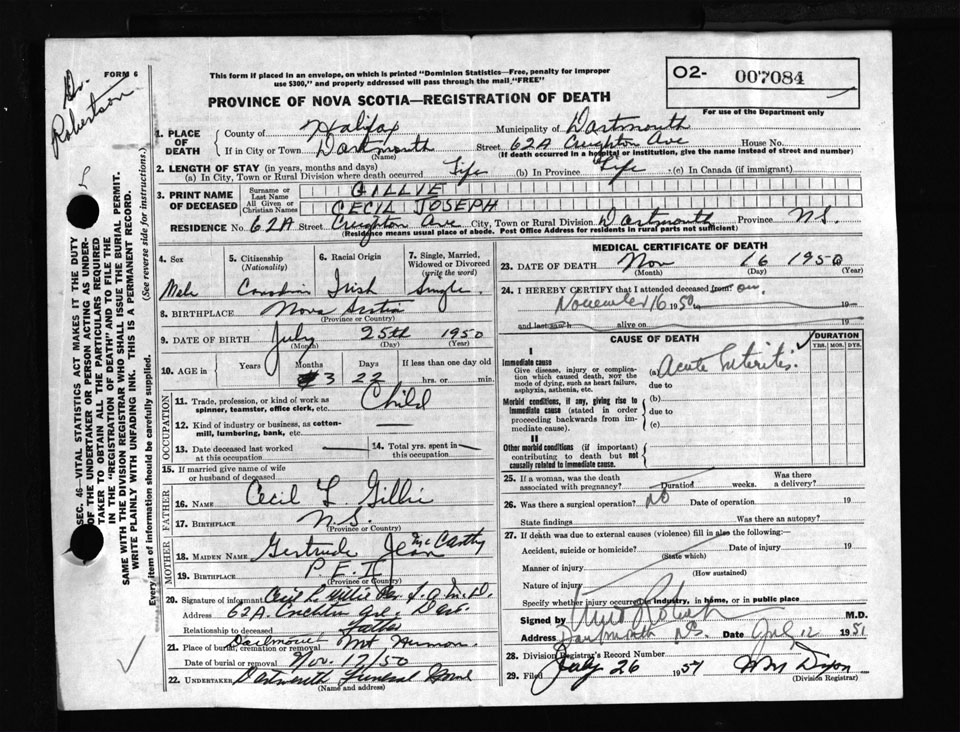 Dr. Robertson
FORM 6
This form if placed in an envelope, on which is printed "Dominion Statistics—Free, penalty for improper
use $300," and properly addressed will pass through the mail "FREE"
PROVINCE OF NOVA SCOTIA—REGISTRATION OF DEATH
02- 007084
For use of the Department only
1. PLACE OF DEATH { County of Halifax Municipality of Dartmouth
If in City or Town Dartmouth (Name) Street 62A Creighton Ave House No.
(If death occurred in a hospital or institution, give the name instead of street and number)
2. LENGTH OF STAY (in years, months and days)
(a) In City, Town or Rural Division where death occurred Life (b) In Province Life (c) In Canada (if immigrant)
3. PRINT NAME OF DECEASED { Surname or Last Name GILLIE
All Given or Christian Names CECIL JOSEPH
RESIDENCE No. 62A Street Creighton Ave City, Town or Rural Division Dartmouth Province N.S.
(Residence means usual place of abode. Post Office Address for residents in rural parts not sufficient)
4. Sex Male
5. Citizenship (Nationality) Canadian
6. Racial Origin Irish
7. Single, Married, Widowed or Divorced (write the word) Single.
8. BIRTHPLACE Nova Scotia
(Province or Country)
9. DATE OF BIRTH July 25th 1950
(Month) (Day) (Year)
10. AGE in { Years Months 3 Days 22 If less than one day old
hrs. or min.
OCCUPATION
11. Trade, profession, or kind of work as spinner, teamster, office clerk, etc. Child
12. Kind of industry or business, as cotton-mill, lumbering, bank, etc. —
13. Date deceased last worked at this occupation —
14. Total yrs. spent in this occupation —
15. If married give name of wife or husband of deceased
FATHER
16. NAME Cecil L Gillie
17. BIRTHPLACE N.S.
(Province or Country)
MOTHER
18. MAIDEN NAME Gertrude Jean McCarthy
19. BIRTHPLACE P.E.I.
(Province or Country)
20. Signature of informant Cecil L Gillie Per
Address 62A Creighton Ave., Dart.
Relationship to deceased Father
21. Place of burial, cremation or removal Dartmouth Mt Hermon.
Date of burial or removal Nov. 17/50
22. UNDERTAKER Dartmouth Funeral Home
(Name and address)
MEDICAL CERTIFICATE OF DEATH
23. DATE OF DEATH Nov 16 1950
(Month) (Day) (Year)
24. I HEREBY CERTIFY that I attended deceased from: on.
November 16 1950 19
and last saw h alive on 19
CAUSE OF DEATH
DURATION
YRS. MOS. DYS.
I
Immediate cause
Give disease, injury or complication which caused death, NOT the mode of dying, such as heart failure, asphyxia, asthenia, etc.
(a) Acute Enteritis.
due to
Morbid conditions, if any, giving rise to immediate cause (stated in order proceeding backwards from immediate cause).
(b)
due to
(c)
II
Other morbid conditions (if important) contributing to death but not causally related to immediate cause.
25. If a woman, was the death associated with pregnancy? Duration weeks. Was there a delivery?
26. Was there a surgical operation? No Date of operation 19
State findings Was there an autopsy?
27. If death was due to external causes (violence) fill in also the following:—
Accident, suicide or homicide? Date of injury 19
(State which)
Manner of injury
(How sustained)
Nature of injury
Specify whether injury occurred in industry, in home, or in public place
Signed by M.D.
Address Dartmouth N.S. Date July 12 1951
28. Division Registrar's Record Number
29. Filed July 26 1951 Wm Dixon
(Division Registrar)
SEC. 46—VITAL STATISTICS ACT MAKES IT THE DUTY
OF THE UNDERTAKER OR PERSON ACTING AS UNDER-
TAKER TO OBTAIN ALL THE PARTICULARS REQUIRED
IN THE "REGISTRATION OF DEATH" AND TO FILE THE
SAME WITH THE DIVISION REGISTRAR WHO SHALL ISSUE THE BURIAL PERMIT.
WRITE PLAINLY WITH UNFADING INK. THIS IS A PERMANENT RECORD.
Every item of information should be carefully supplied. (See reverse side for instructions.)